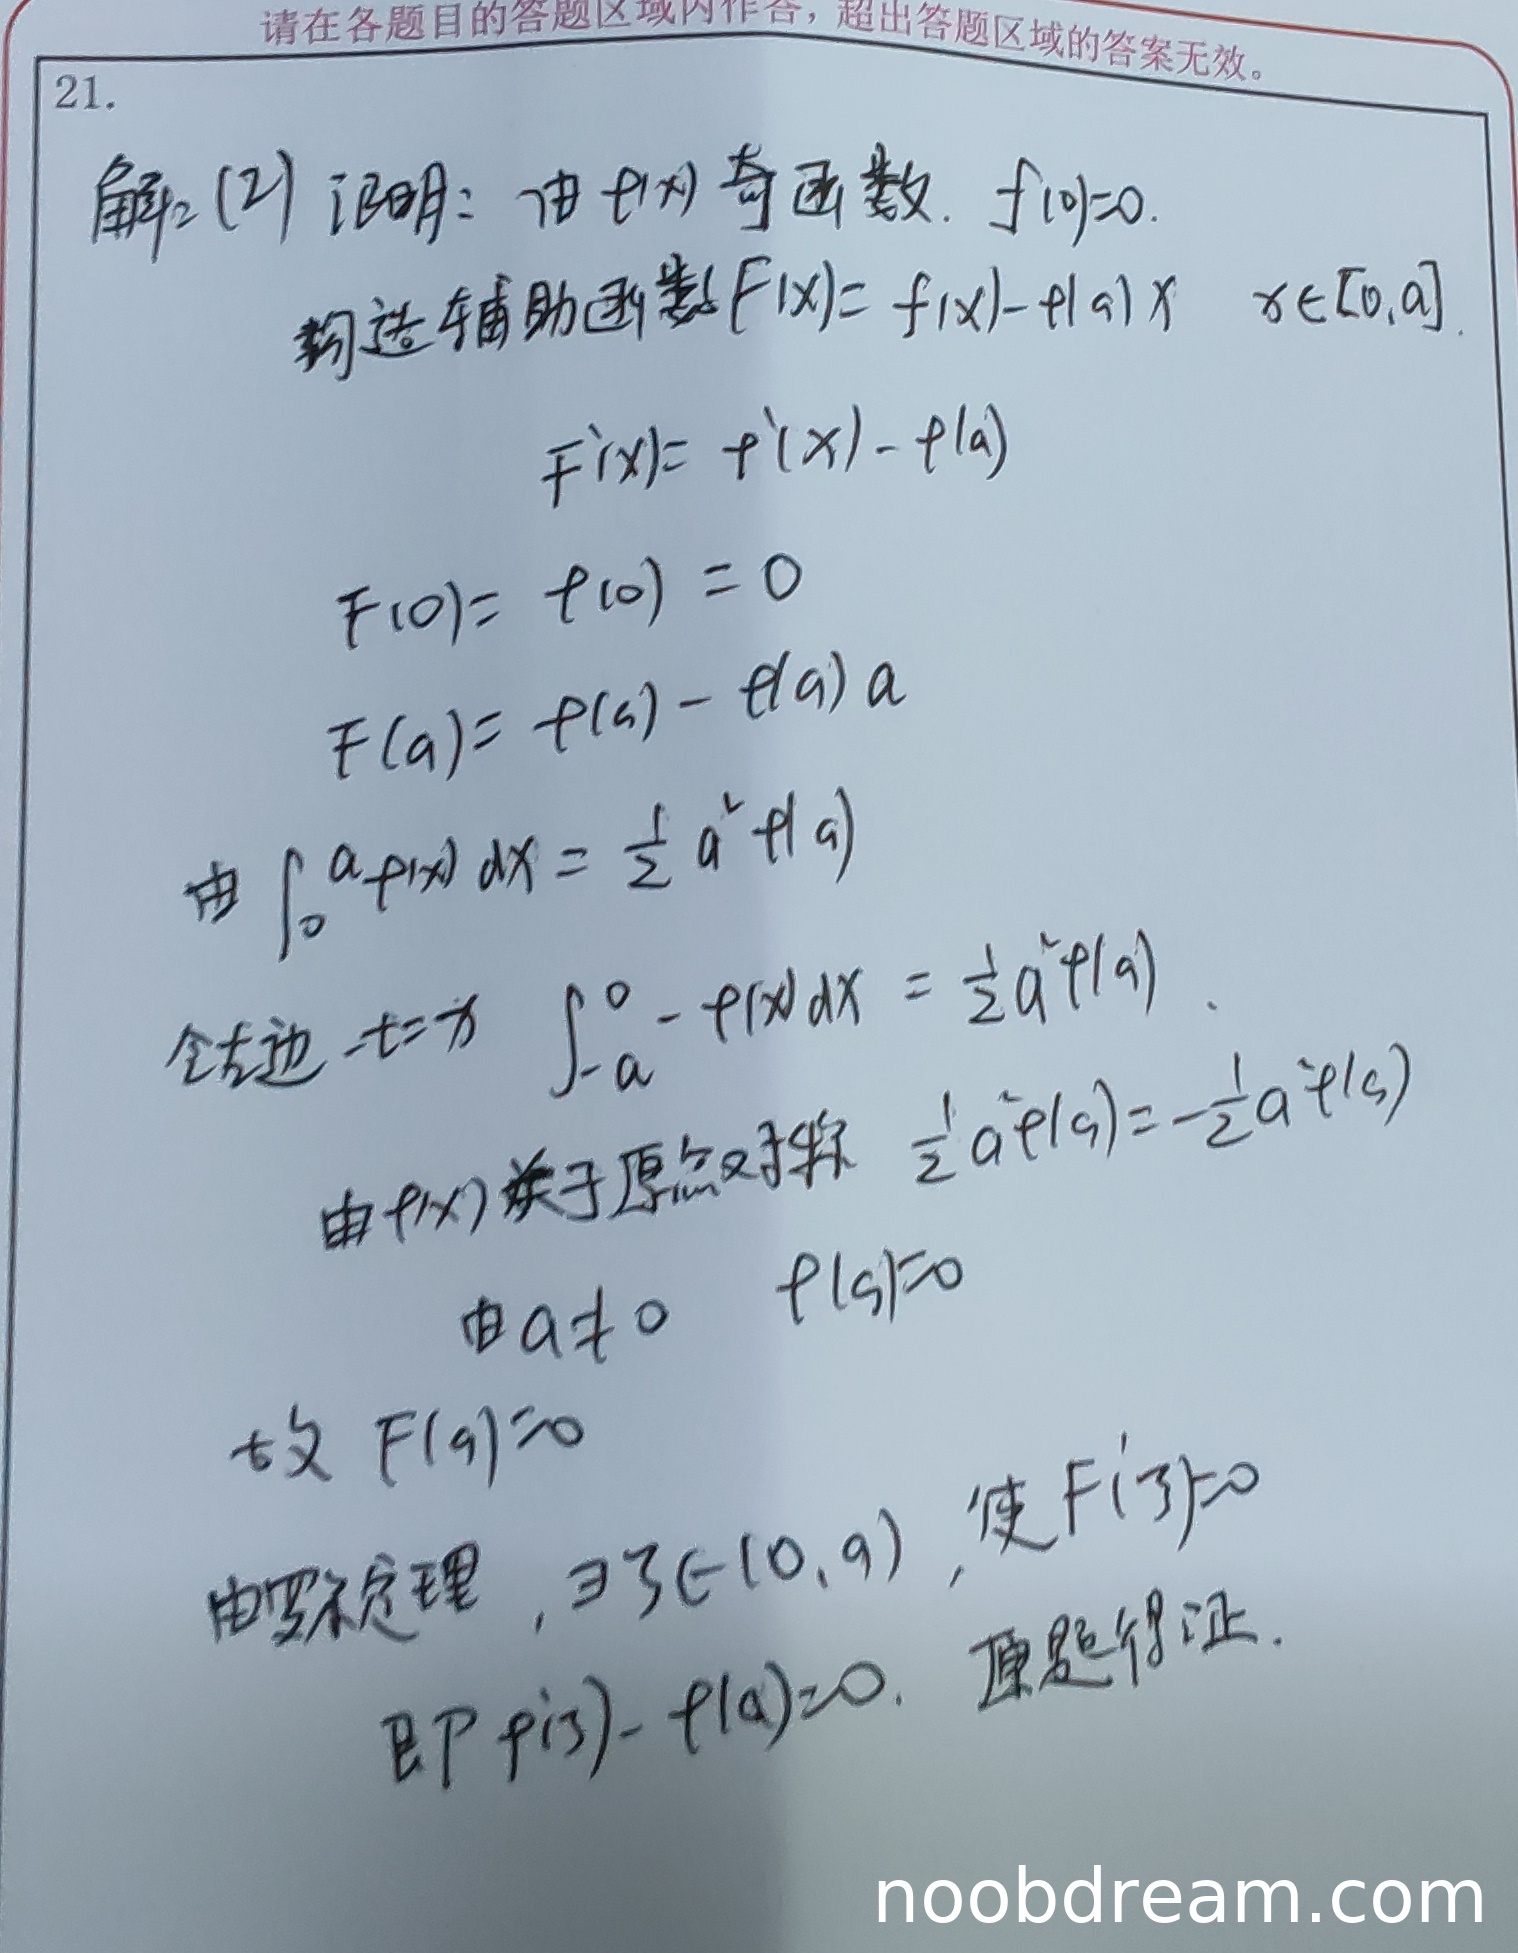 请在各题目的答题区域内作答，超出答题区域的答案无效。
21.
解:(2) 证明: 由f(x)奇函数. f(0)=0.
构造辅助函数F(x)= f(x)-f(a)x x∈[0,a].
F'(x)= f'(x)-f(a)
F(0)= f(0) =0
F(a)= f(a)- f(a)a
由 ∫₀ᵃ f(x) dx = 1/2 a² f(a)
令左边 -t=x ∫₋ₐ⁰ -f(x)dx = 1/2 a² f(a).
由f(x)关于原点对称 1/2 a² f(a) = -1/2 a² f(a)
由a≠0 f(a)=0
故 F(a)=0
由罗尔定理, ∃ξ∈(0,a), 使F'(ξ)=0
即f'(ξ)-f(a)=0. 原题得证.
noobdream.com